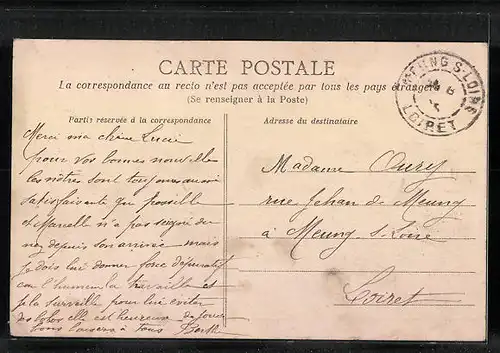 CARTE POSTALE
La correspondance au recto n'est pas acceptée par tous les pays étrangers
(Se renseigner à la Poste)
Partie réservée à la correspondance
Adresse du destinataire
MEUNG-S-LOIRE
LOIRET
Merci ma chère Lucie
pour vos bonnes nouvelles
les nôtres sont toujours aussi
satisfaisantes que possible
Marcelle n'a pas saigné du
nez depuis son arrivée mais
je dois lui donner force dépuratif
car l'humeur la travaille et
je la surveille pour lui éviter
elle est heureuse de jouer
bons baisers à tous Berthe
Madame Oury
rue Jehan de Meung
à Meung s-Loire
Loiret